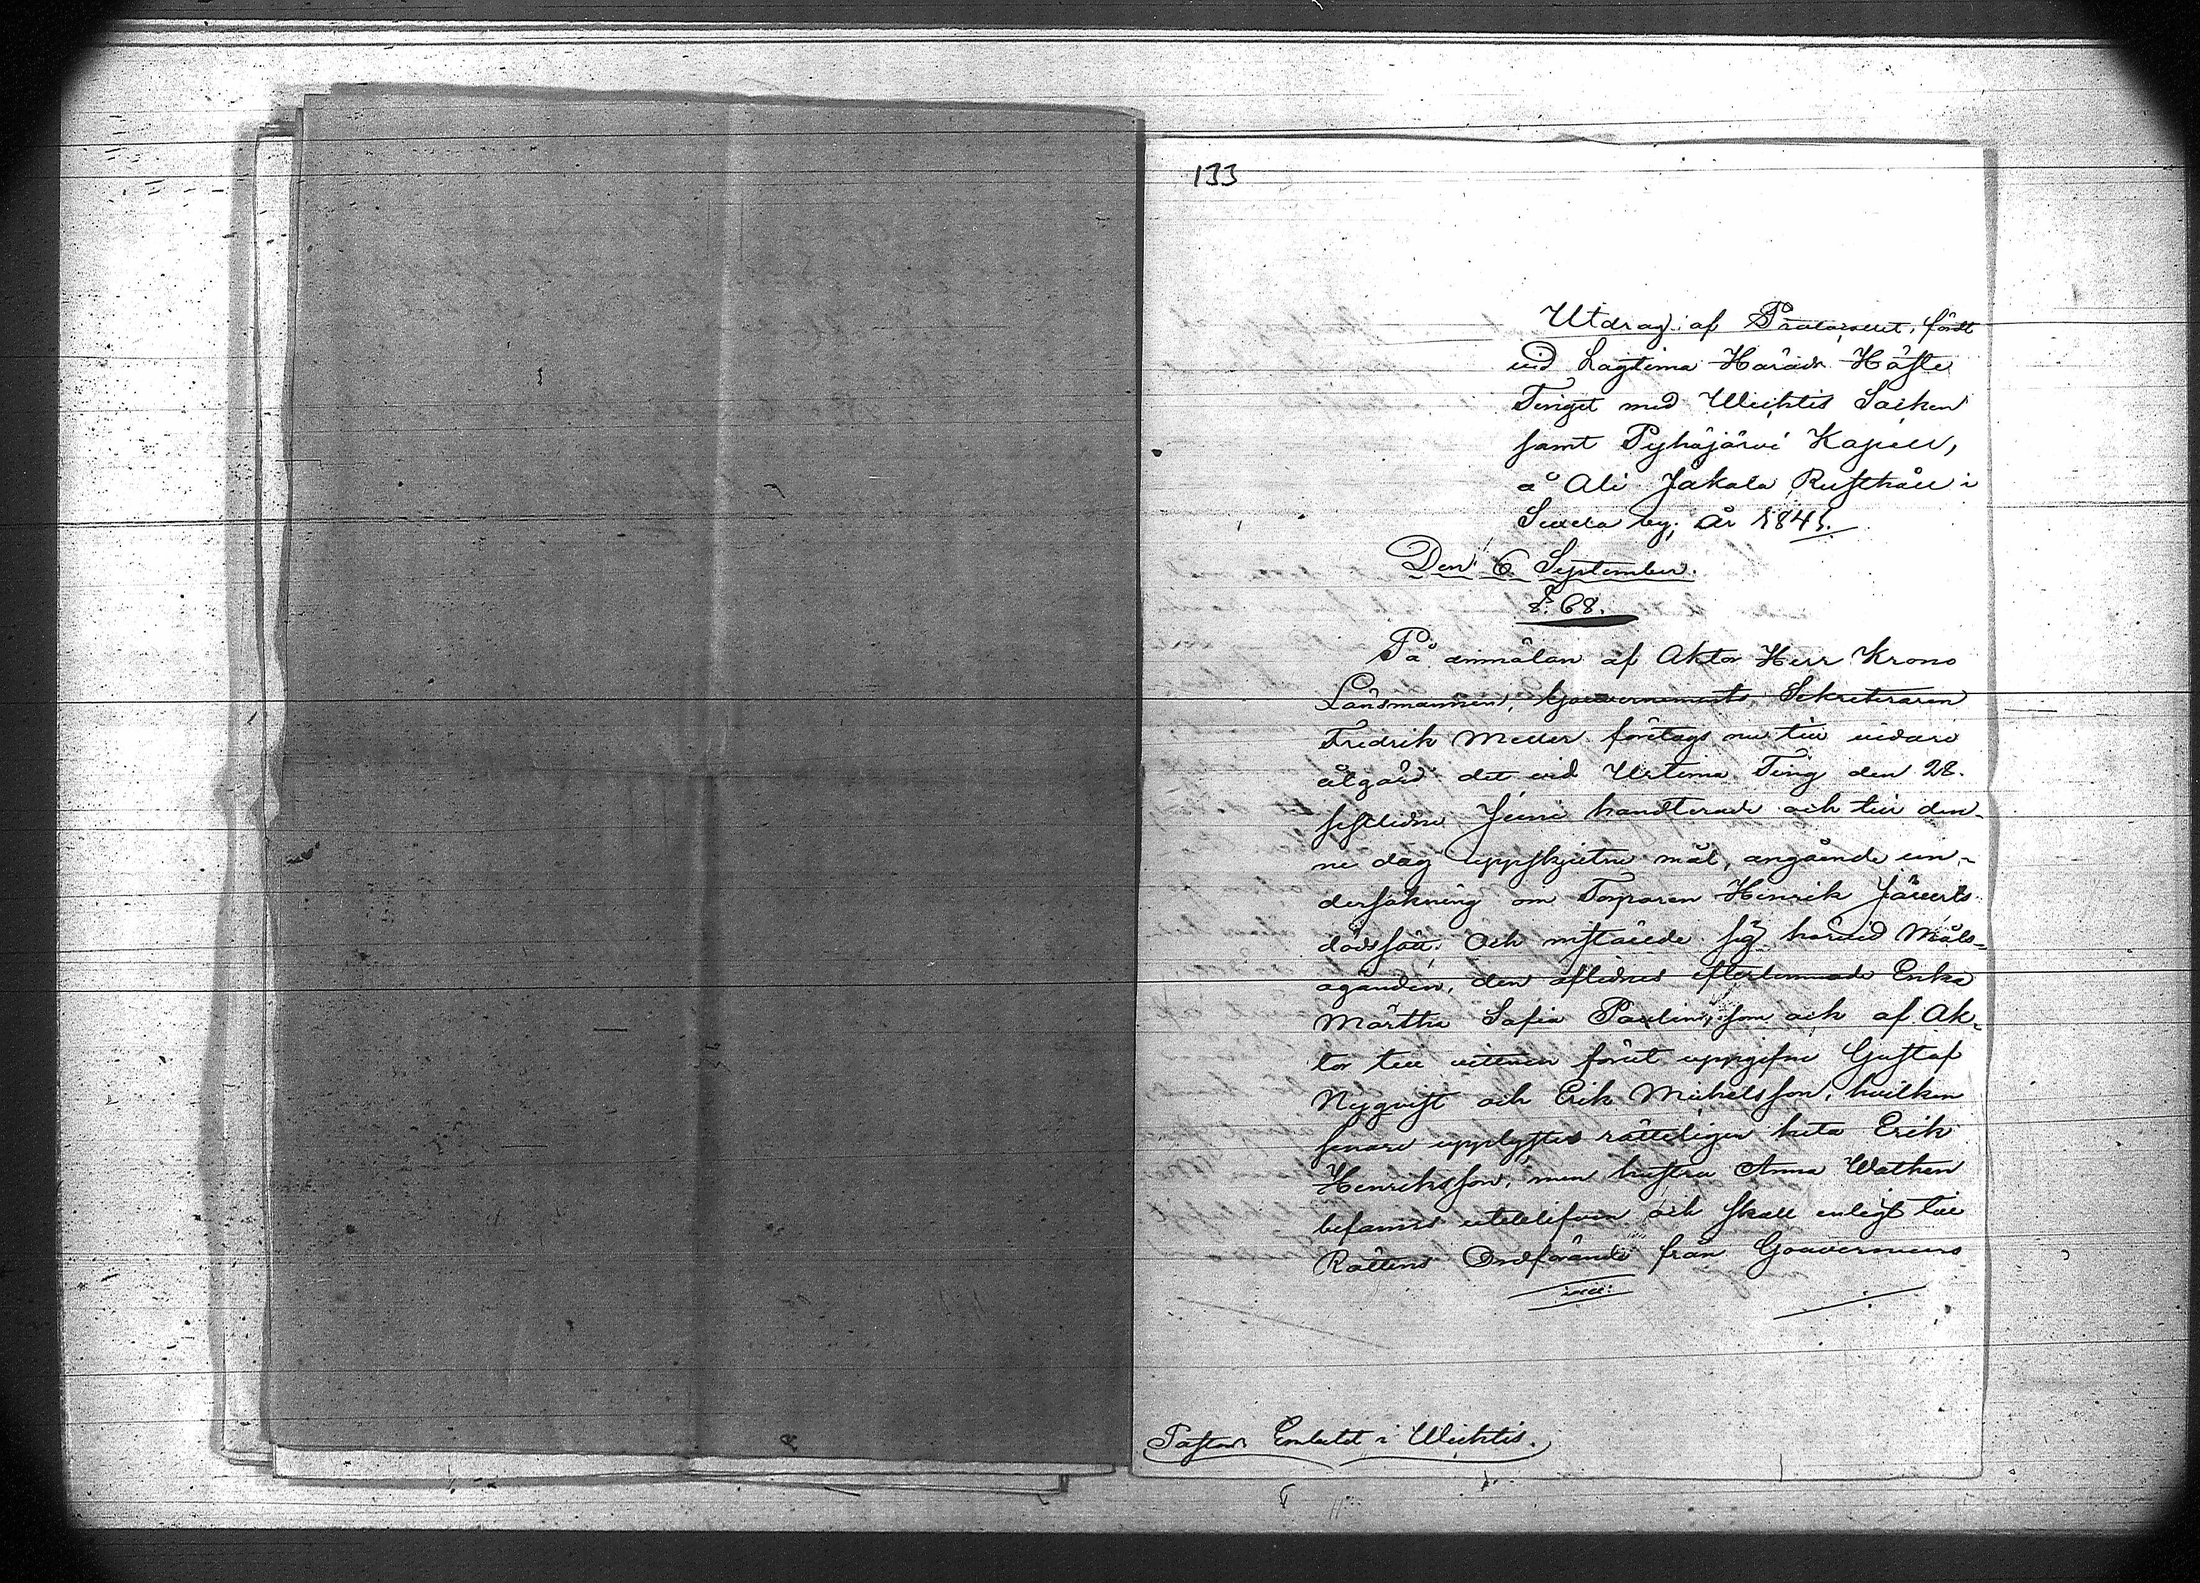 133
Utdrag af Protocollet, fördt
vid Lagtima Härads Höste
Tinget med Wichtis Socken
samt Pyhäjärvi Kapell,
å Ali Jakala Rusthåll i
Suxela by, år 1845.
Den 6 September.
§. 68.
På anmälan af Aktor Herr Krono
Länsmannen, Gouvernements Sekreteraren
Fredrik Meller företags nu till vidare
åtgärd det vid Urtima Ting den 28.
sistledne Junii handterade och till den-
ne dag uppskjutne mål, angående un-
dersökning om Torparen Henrik
dödssätt; Och inställde sig härvid Måls-
äganden, den aflidnes efterlemnade Enka
Märtha Sofia Paulin, som ock af Ak-
tor till vittnen förut uppgifne Gustaf
Nyqvist och Erik Michelsson, hvilken
senare upplystes rätteligen heta Erik
Henriksson, men hustru Anna Wathen
befanns utebliven och skall enligt till
Rättens Ordförande från Gouverneurs
Pastors Embetet i Wichtis.